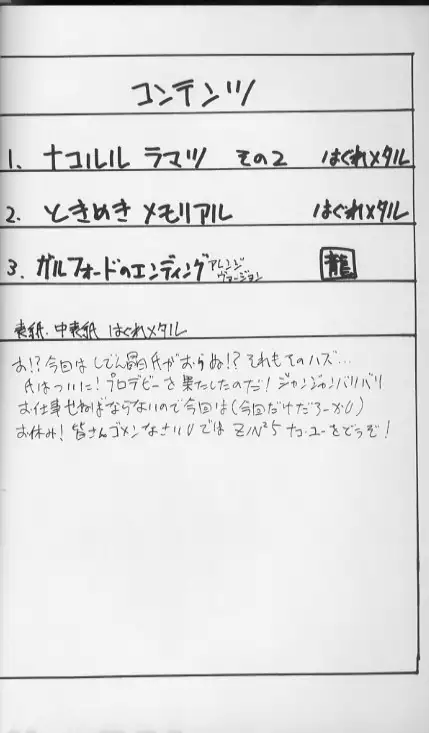 コンテンツ
1. ナコルル ラマツ その2 はぐれメタル
2. ときめきメモリアル はぐれメタル
3. ガルフォードのエンディング アレンジ ヴァージョン 龍
表紙・中表紙 はぐれメタル
お!?今回はしでん晶氏がおらぬ!?それもそのハズ…
氏はついに!プロデビーを果たしたのだ!ジャンジャンバリバリ
お仕事せねばならないので今回は(今回だけだろーか)
お休み!皆さんゴメンなさい では どうぞ!